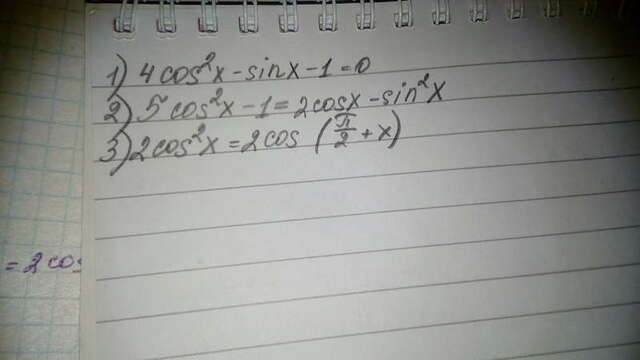 1) 4cos²x - sinx - 1 = 0
2) 5cos²x - 1 = 2cosx - sin²x
3) 2cos²x = 2cos (π/2 + x)
= 2cos